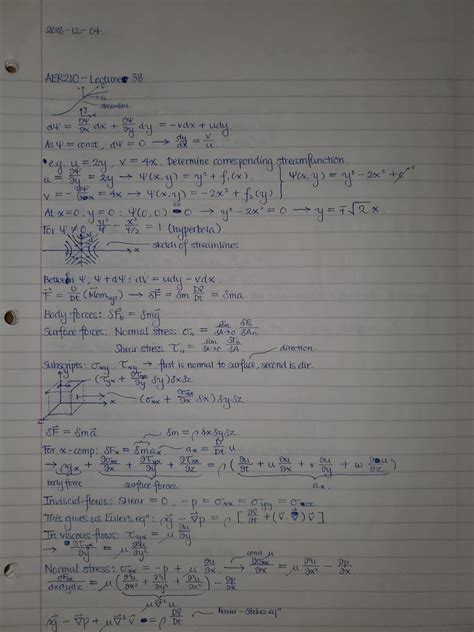 2018-12-04.
AER210 - Lecture 38
streamline
dΨ = ∂Ψ/∂x dx + ∂Ψ/∂y dy = -vdx + udy
As Ψ = const, dΨ = 0 → dy/dx = v/u
e.g. u = 2y, v = 4x. Determine corresponding streamfunction.
u = ∂Ψ/∂y = 2y → Ψ(x,y) = y² + f₁(x).
v = -∂Ψ/∂x = 4x → Ψ(x,y) = -2x² + f₂(y) } Ψ(x,y) = y² - 2x² + c
At x=0, y=0 : Ψ(0,0) = 0 → y² - 2x² = 0 → y = ∓√2 x.
For Ψ ≠ 0, y²/Ψ - x²/Ψ/2 = 1 (hyperbola)
sketch of streamlines
Between Ψ, Ψ + dΨ : dV̇ = udy - vdx.
F⃗ = D/Dt (Mom sys) → δF⃗ = δm DV⃗/Dt = δma⃗
Body forces: δF⃗b = δmg⃗
Surface forces: Normal stress: σn = lim δA→0 δFn/δAn
Shear stress: τn = lim δA→0 δFt/δAn
direction
Subscripts: σxy, τxy → first is normal to surface, second is dir.
(τyx + ∂τyx/∂y δy)δxδz
(σxx + ∂σxx/∂x δx)δyδz
δF⃗ = δma⃗
δm = ρδxδyδz
For x-comp: δFx = δmax
ax = Du/Dt
→ ρgx + ∂σxx/∂x + ∂τyx/∂y + ∂τzx/∂z = ρ(∂u/∂t + u ∂u/∂x + v ∂u/∂y + w ∂u/∂z)
body force surface forces ax
Inviscid flows: Shear = 0, -p = σxx = σyy = σzz
"This gives us Euler's eqⁿ" : ρg⃗ - ∇p = ρ[∂V⃗/∂t + (V⃗·∇)V⃗]
In viscous flows: τyx = μ ∂u/∂y
→ ∂τyx/∂y = μ ∂²u/∂y²
const μ
Normal stress: σxx = -p + μ ∂u/∂x → ∂σxx/∂x = μ ∂²u/∂x² - ∂p/∂x
dFsx/dxdydz = μ(∂²u/∂x² + ∂²u/∂y² + ∂²u/∂z²) - ∂p/∂x
μ∇²u
ρg⃗ - ∇p + μ∇²V⃗ = ρ DV⃗/Dt
Navier-Stokes eqⁿ